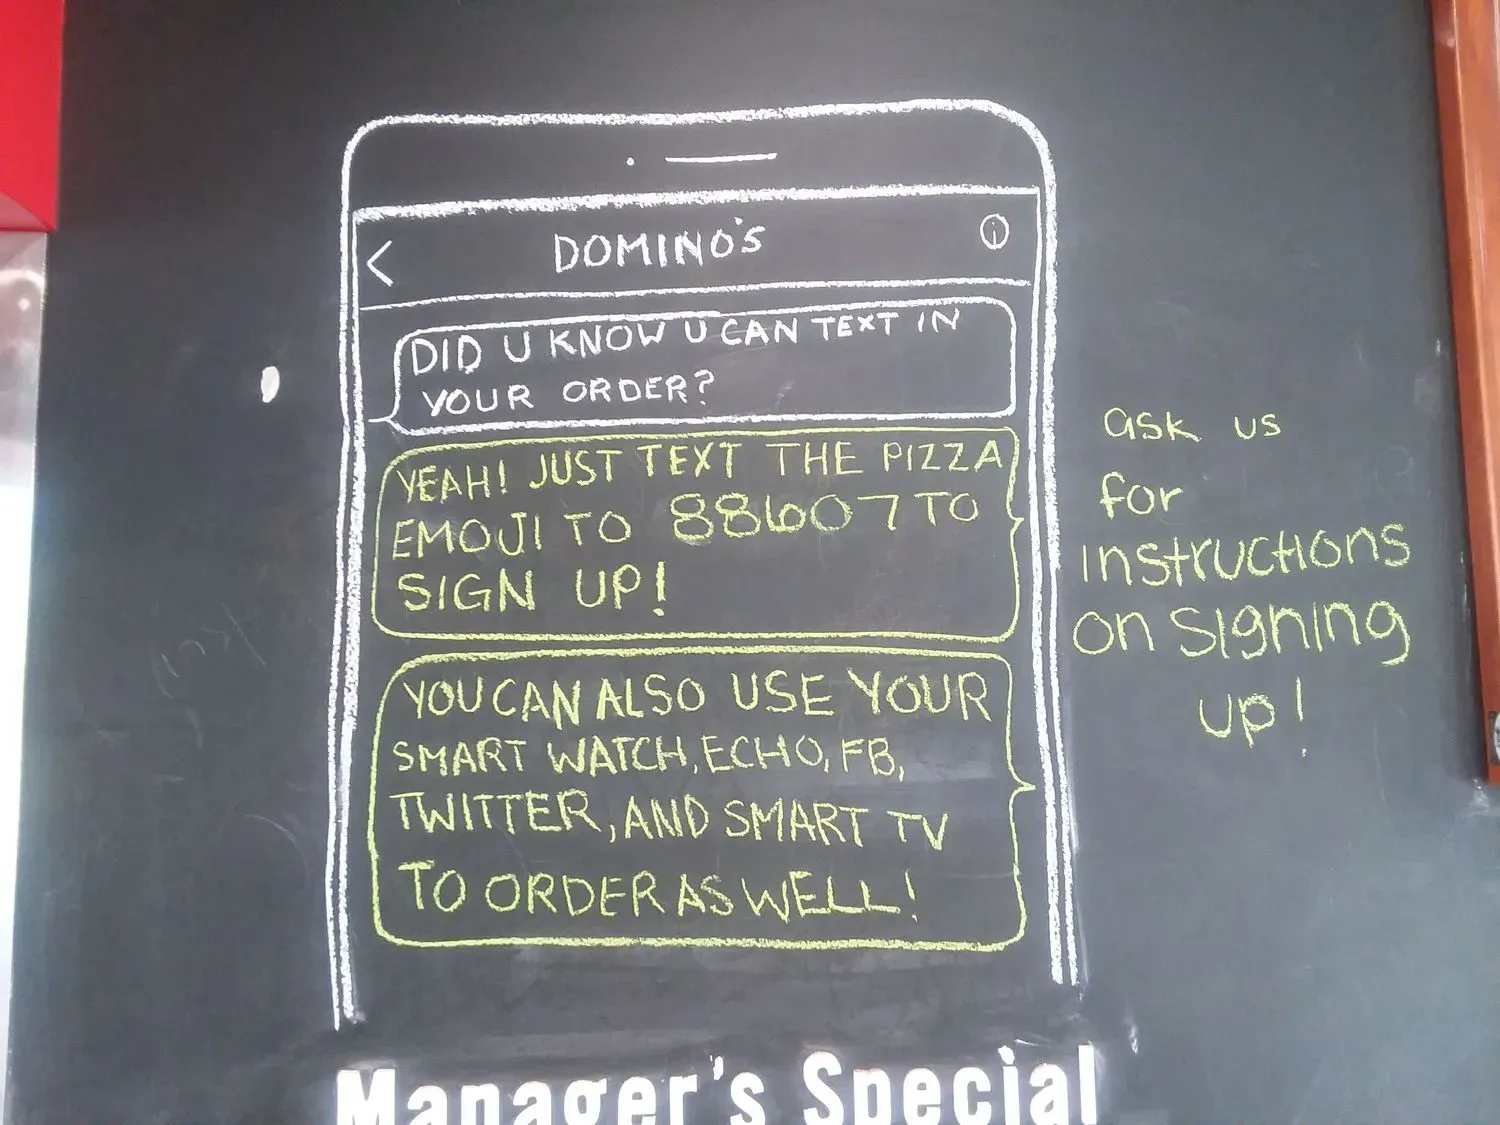 DOMINO'S
DID U KNOW U CAN TEXT IN
YOUR ORDER?
YEAH! JUST TEXT THE PIZZA
EMOJI TO 88607 TO
SIGN UP!
YOU CAN ALSO USE YOUR
SMART WATCH, ECHO, FB,
TWITTER, AND SMART TV
TO ORDER AS WELL!
ask us
for
instructions
on signing
up!
Manager's Special